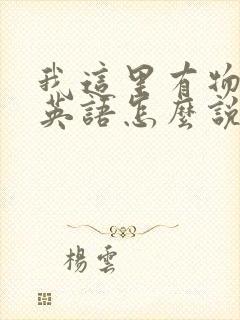 我這里有物
英語怎麼說
楊雲